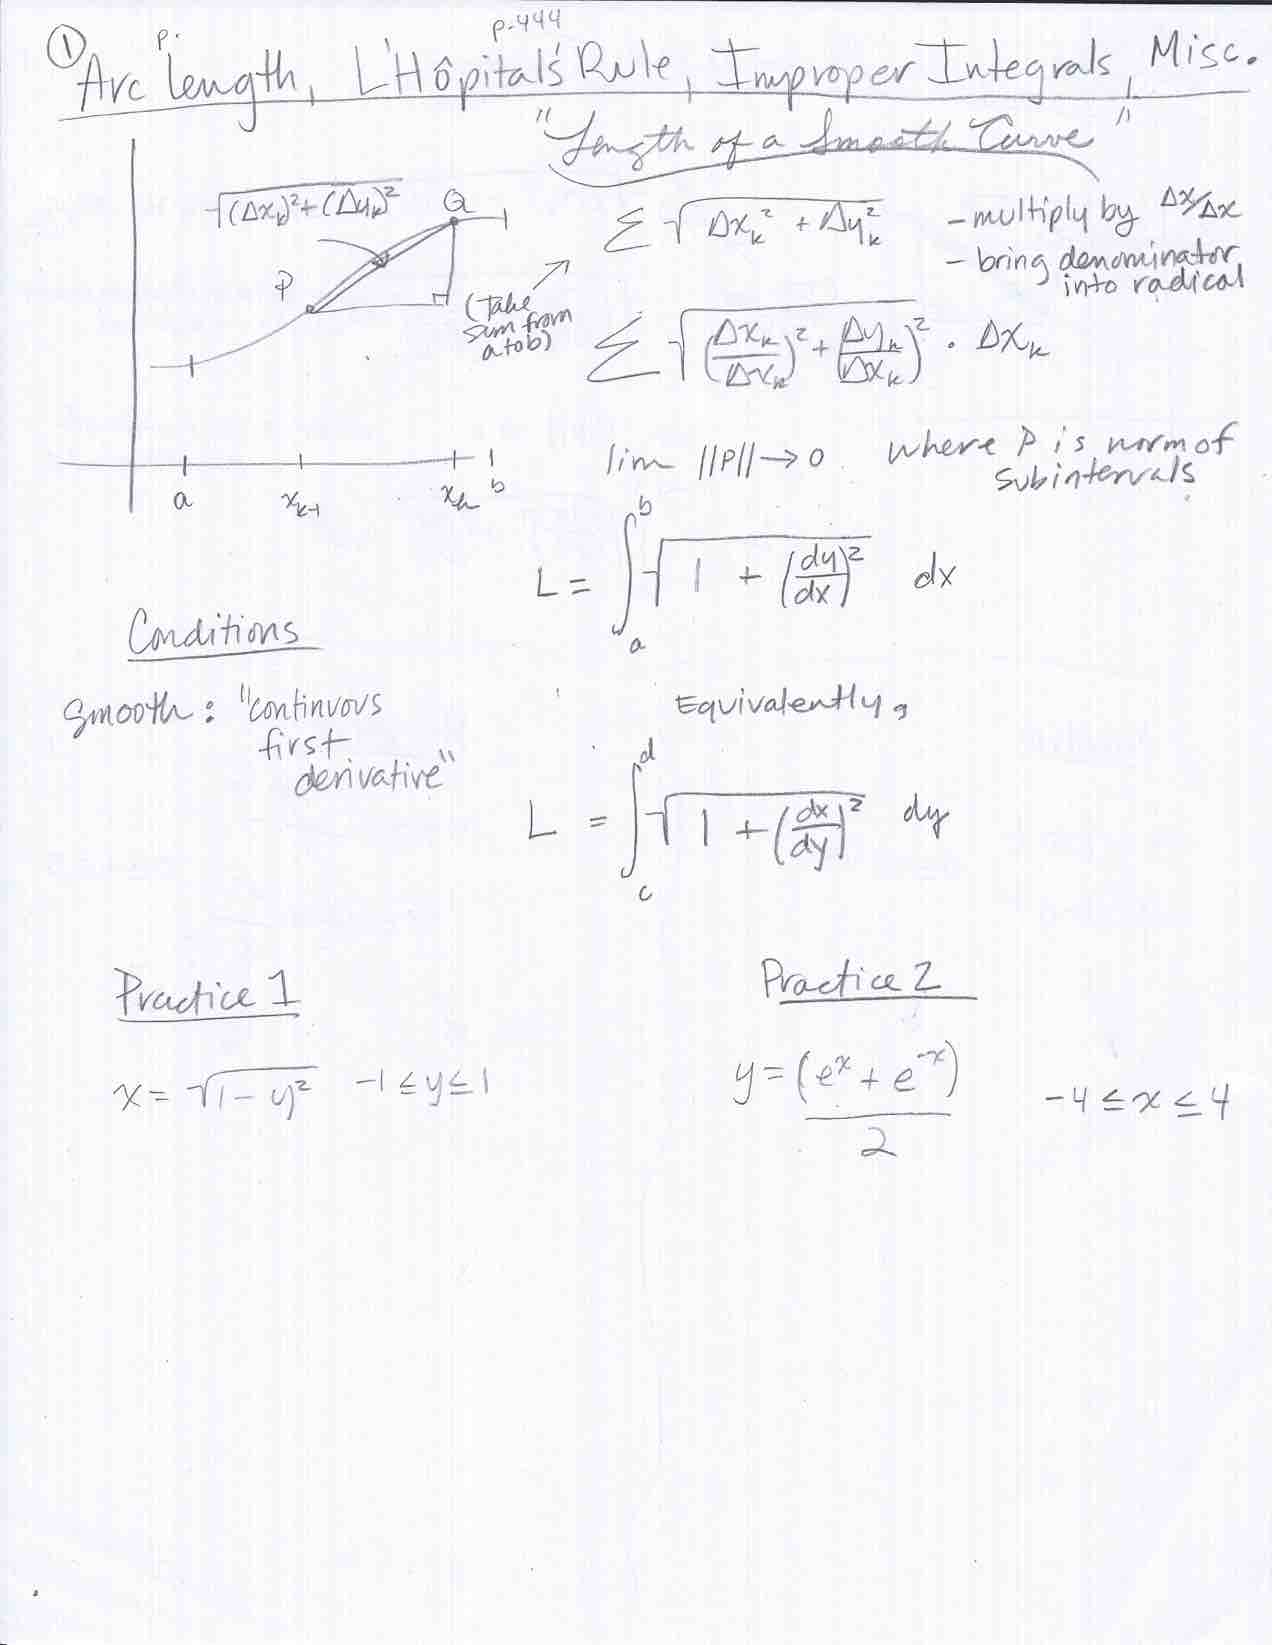 ① p. p.444
Arc Length, L'Hôpital's Rule, Improper Integrals, Misc.
"Length of a Smooth Curve"
√(Δxₖ)²+(Δyₖ)²
Q
P
(Take
sum from
a to b)
a xₖ₋₁ xₖ b
∑ √Δxₖ² + Δyₖ²
- multiply by Δx/Δx
- bring denominator
into radical
∑ √(Δxₖ/Δxₖ)² + (Δyₖ/Δxₖ)² · Δxₖ
lim ||P|| → 0 where P is norm of
subintervals
L = ∫ₐᵇ √1 + (dy/dx)² dx
Conditions
Smooth: "continuous
first
derivative"
Equivalently,
L = ∫_c^d √1 + (dx/dy)² dy
Practice 1
x = √1 - y² -1 ≤ y ≤ 1
Practice 2
y = (eˣ + e⁻ˣ)/2 -4 ≤ x ≤ 4